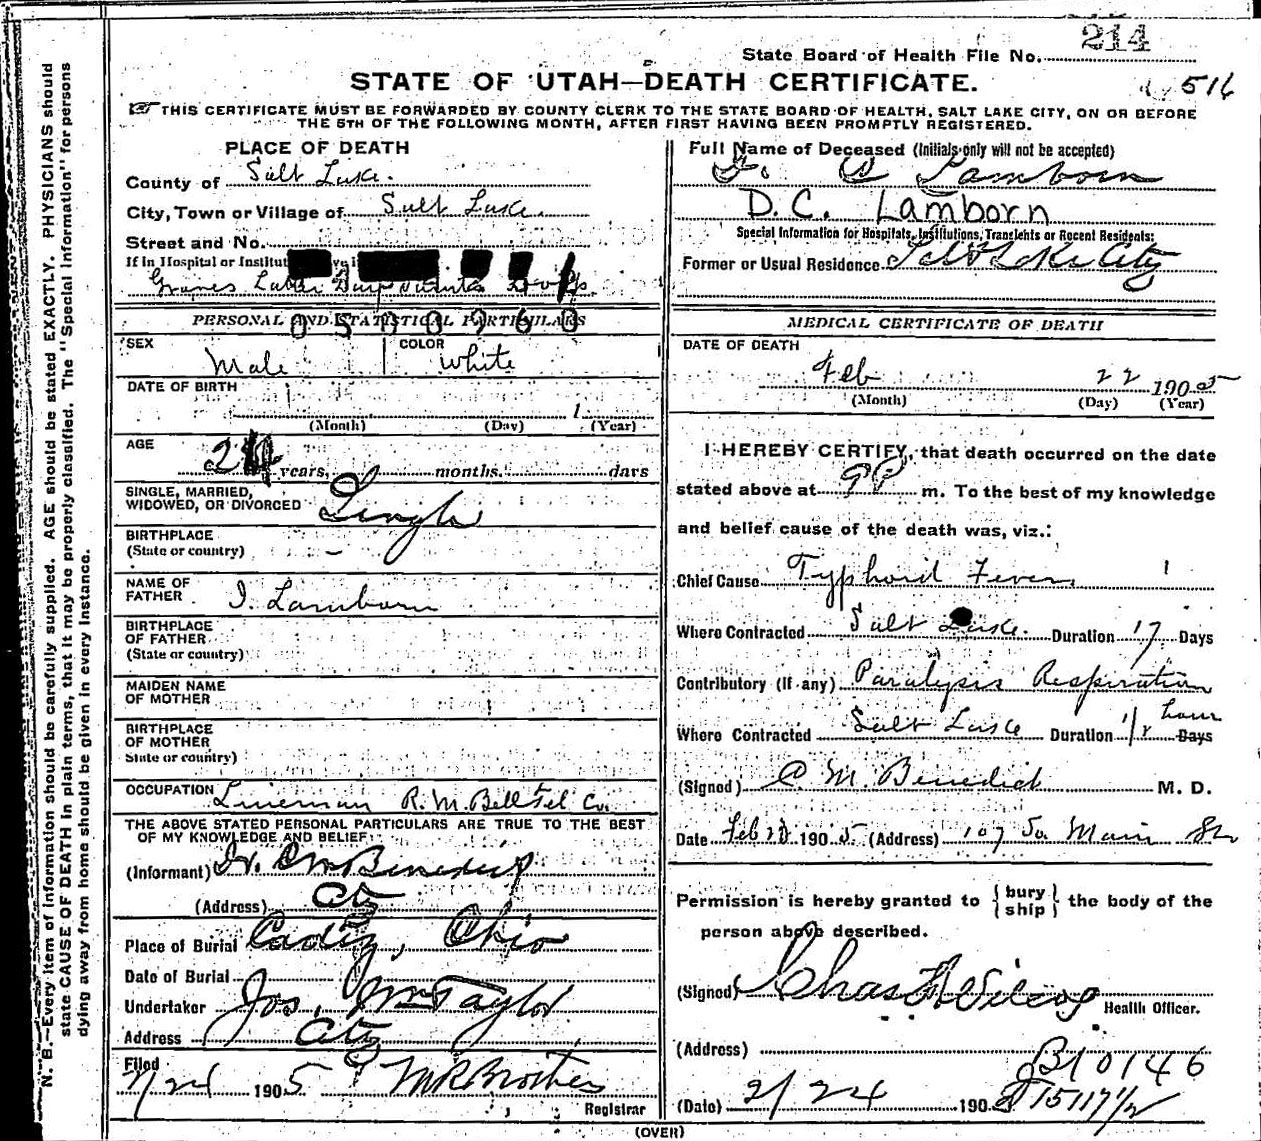 214
State Board of Health File No.
STATE OF UTAH—DEATH CERTIFICATE.
516
THIS CERTIFICATE MUST BE FORWARDED BY COUNTY CLERK TO THE STATE BOARD OF HEALTH, SALT LAKE CITY, ON OR BEFORE
THE 5TH OF THE FOLLOWING MONTH, AFTER FIRST HAVING BEEN PROMPTLY REGISTERED.
N. B.—Every item of information should be carefully supplied. AGE should be stated EXACTLY. PHYSICIANS should
state CAUSE OF DEATH in plain terms, that it may be properly classified. The "Special Information" for persons
dying away from home should be given in every instance.
PLACE OF DEATH
County of Salt Lake.
City, Town or Village of Salt Lake.
Street and No.
If in Hospital or Institut
Latter Day Saints
0500960
PERSONAL AND STATISTICAL PARTICULARS
SEX Male COLOR White
DATE OF BIRTH
1
(Month) (Day) (Year)
AGE 24 years, months. days
SINGLE, MARRIED,
WIDOWED, OR DIVORCED Single
BIRTHPLACE
(State or country) –
NAME OF
FATHER I. Lamborn
BIRTHPLACE
OF FATHER
(State or country)
MAIDEN NAME
OF MOTHER
BIRTHPLACE
OF MOTHER
State or country)
OCCUPATION Lineman R. M. Bell Tel Co.
THE ABOVE STATED PERSONAL PARTICULARS ARE TRUE TO THE BEST
OF MY KNOWLEDGE AND BELIEF:
(Informant) Dr. C M Benedict
(Address) City
Place of Burial Cadiz, Ohio
Date of Burial
Undertaker Jos. Wm Taylor
Address City
Filed
2/24 1905
Registrar
Full Name of Deceased (Initials only will not be accepted)
Lamborn
D.C. Lamborn
Special Information for Hospitals, Institutions, Transients or Recent Residents:
Former or Usual Residence Salt Lake City
MEDICAL CERTIFICATE OF DEATH
DATE OF DEATH
Feb 22 1905
(Month) (Day) (Year)
I HEREBY CERTIFY, that death occurred on the date
stated above at 9 P m. To the best of my knowledge
and belief cause of the death was, viz.:
Chief Cause Typhoid Fever
Where Contracted Salt Lake. Duration 17 Days
Contributory (If any) Paralysis Respiration
Where Contracted Salt Lake Duration 1/2 hour Days
(Signed) C. M. Benedict M. D.
Date Feb 1905 (Address) 107 So. Main St
Permission is hereby granted to { bury ship } the body of the
person above described.
(Signed) Chas Wilcox
Health Officer.
(Address)
B10146
(Date) 2/24 190
15117 1/2
(OVER)